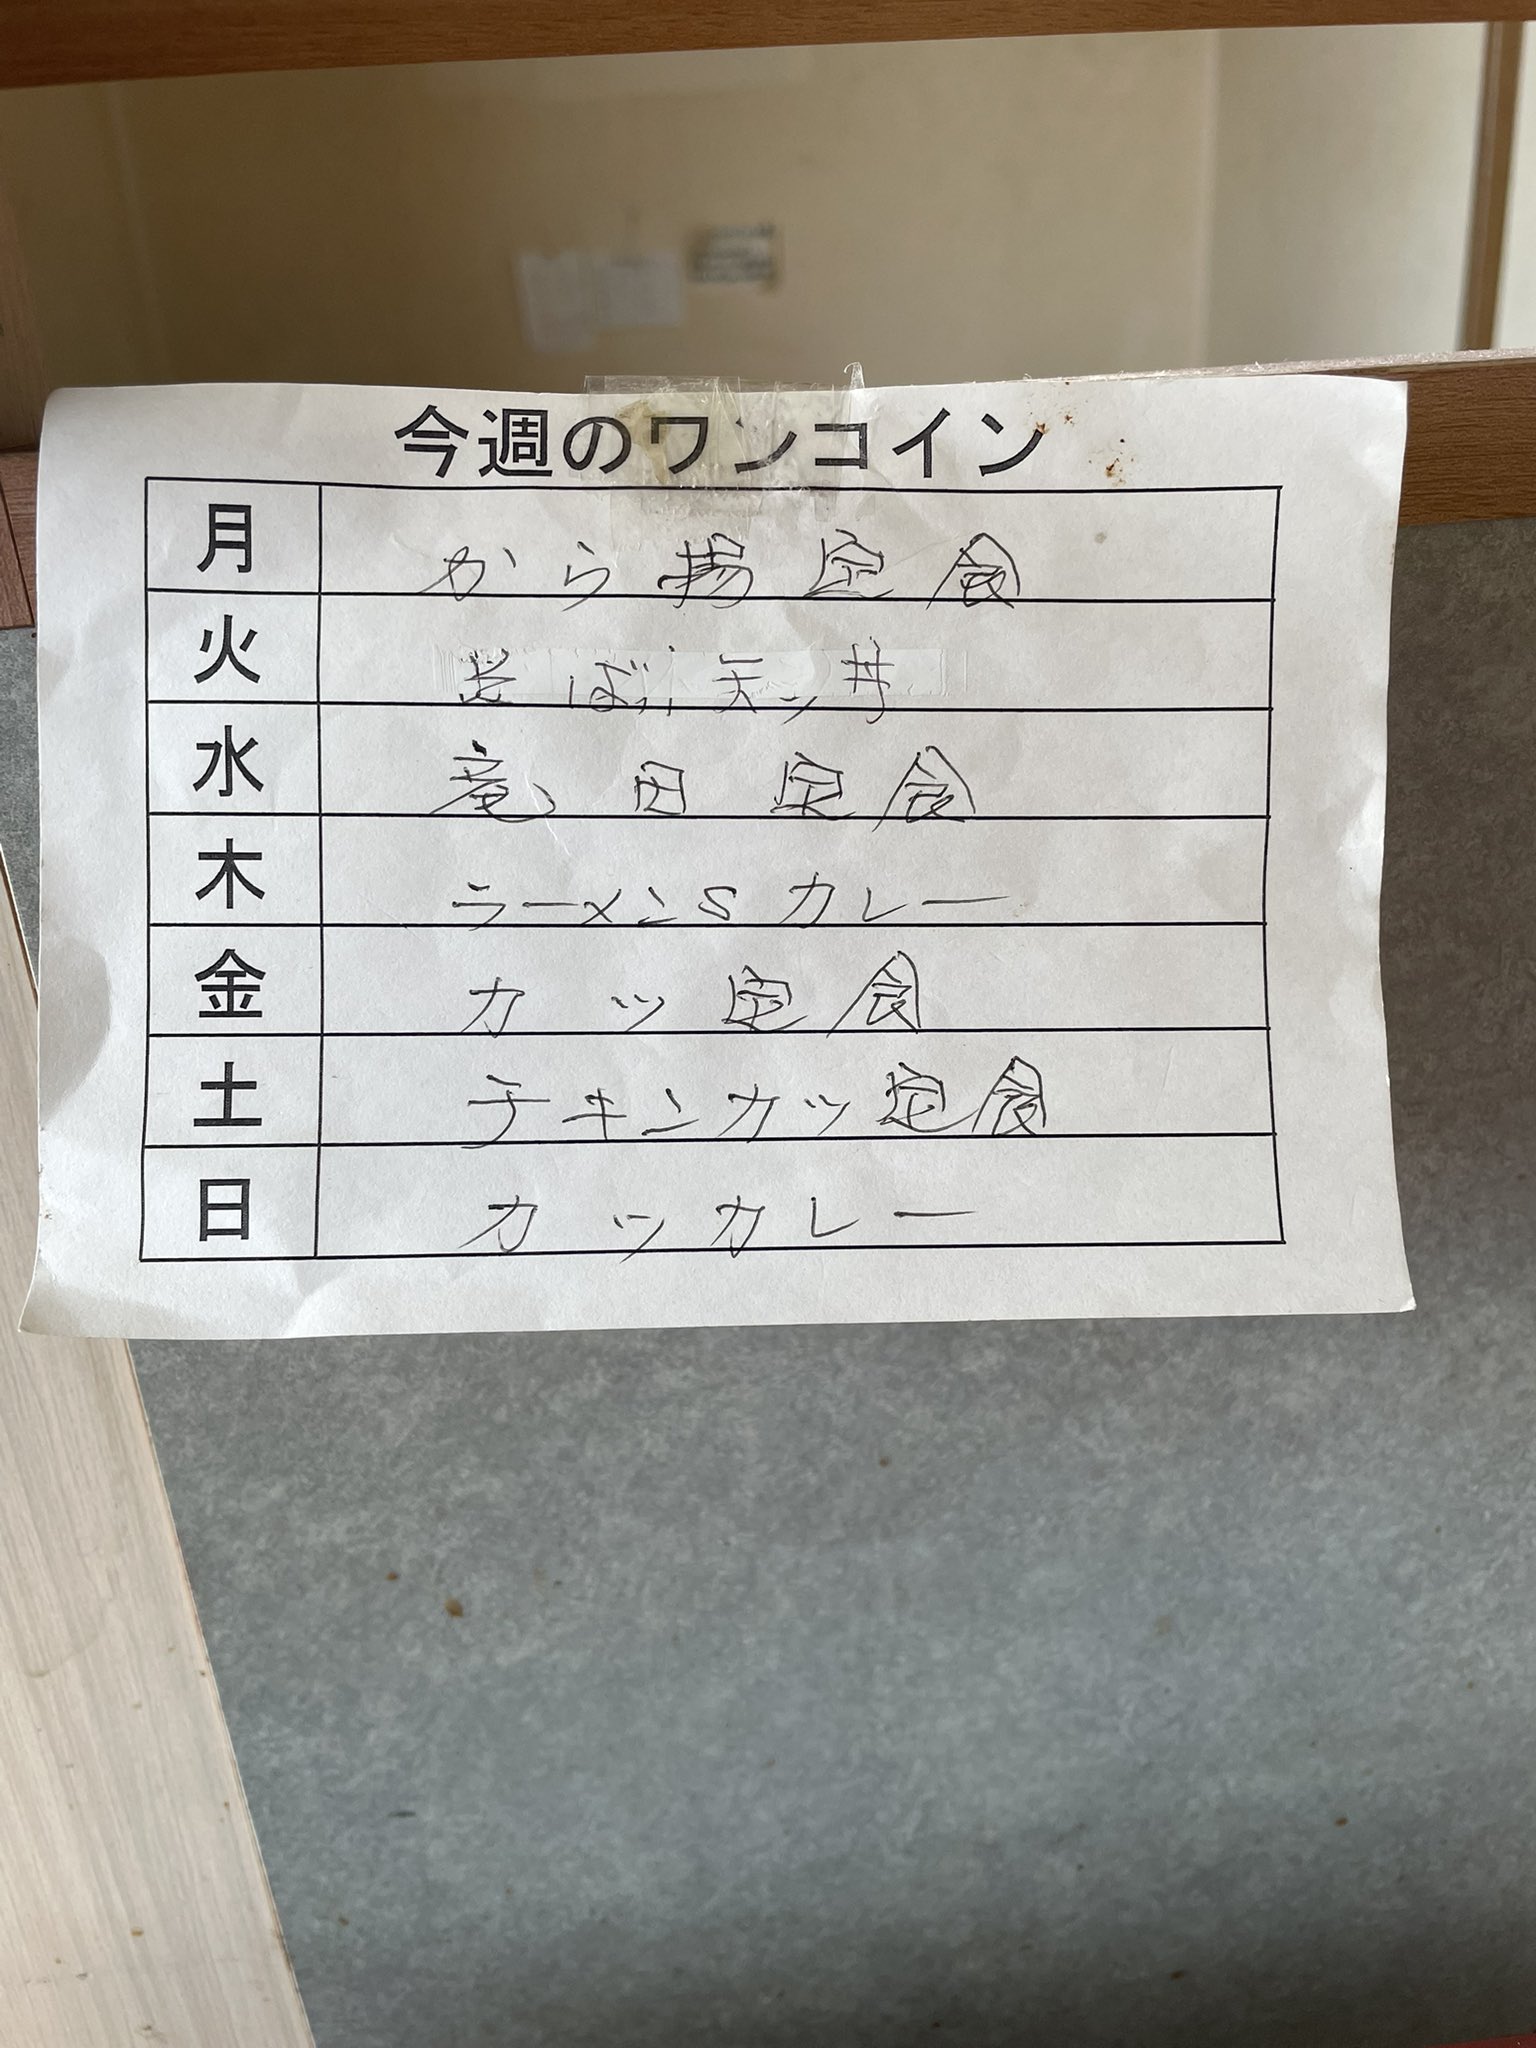 今週のワンコイン
月 から揚定食
火 そばミニ天丼
水 竜田定食
木 ラーメンSカレー
金 カツ定食
土 チキンカツ定食
日 カツカレー